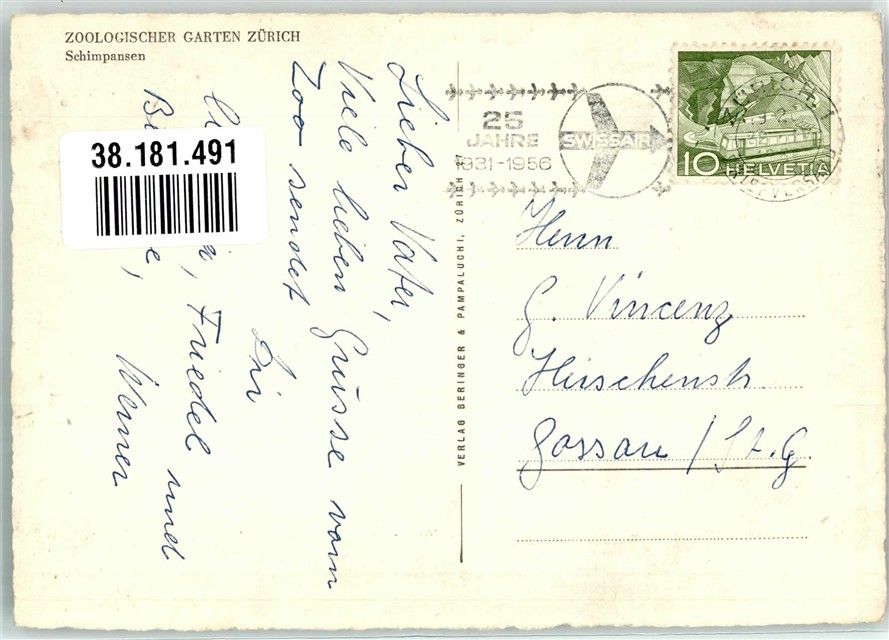 ZOOLOGISCHER GARTEN ZÜRICH
Schimpansen
38.181.491
Lieber Vater,
Viele lieben Grüsse vom
Zoo sendet Dir
Friedel und
Werner
VERLAG BERINGER & PAMPALUCHI, ZÜRICH 27
25
JAHRE
1931-1956
SWISSAIR
ZÜRICH
BRIEFVERSAND
10 HELVETIA
Herrn
G. Vincenz
Hirschenstr.
Gossau / St. G.